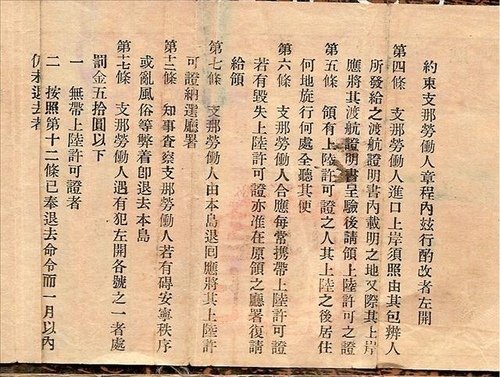 約束支那勞働人章程內玆行酌改者左開
第四條　支那勞働人進口上岸須照由其包辦人
所發給之渡航證明書內載明之地又際其上岸
應將其渡航證明書呈驗後請領上陸許可之證
第五條　領有上陸許可證之人其上陸之後居住
何地旅行何處全聽其便
第六條　支那勞働人合應每常携帶上陸許可證
若有毀失上陸許可證亦准在原領之廳署復請
給領
第七條　支那勞働人由本島退回應將其上陸許
可證納還廳署
第十二條　知事查察支那勞働人若有碍安寧秩序
或亂風俗等弊着卽退去本島
第十七條　支那勞働人遇有犯左開各號之一者處
罰金五拾圓以下
一　無帶上陸許可證者
二　按照第十二條已奉退去命令而一月以內
仍未退去者